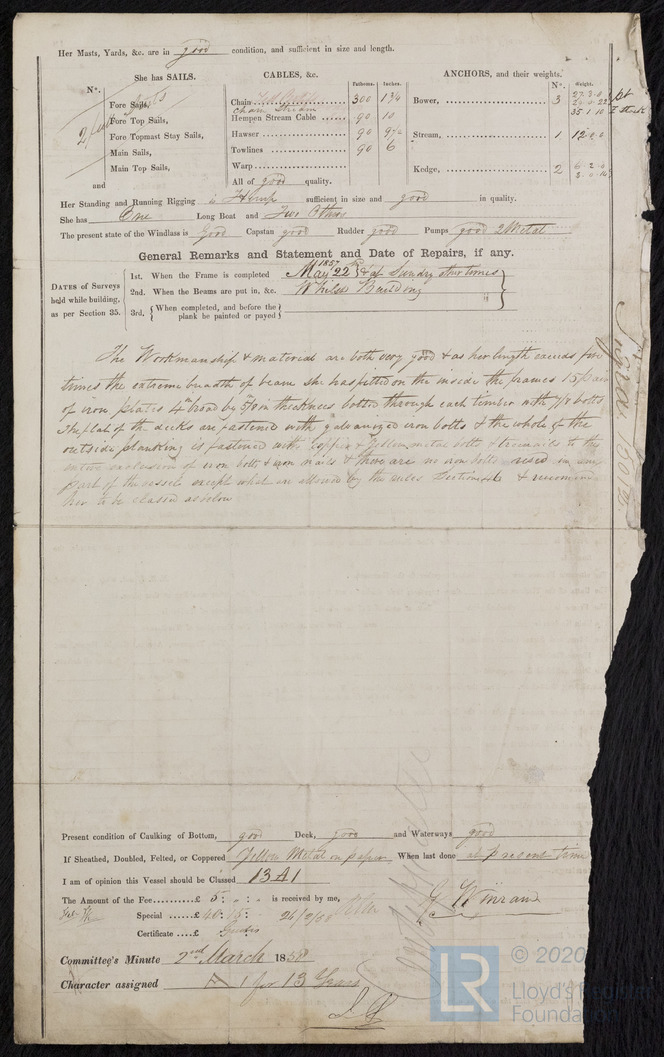 Her Masts, Yards, &c. are in good condition, and sufficient in size and length.
She has SAILS.
CABLES, &c.
Fathoms. Inches.
ANCHORS, and their weights.
Nº. Weight.
Nº.
Fore Sails,
Fore Top Sails,
Fore Topmast Stay Sails,
Main Sails,
Main Top Sails,
and
Chain 300 1 3/4
Chain Stream
Hempen Stream Cable 90 10
Hawser 90 9 1/2
Towlines 90 6
Warp
All of good quality.
Bower, 3
35 . 1 . 10
Stream, 1 12 . 0 . 0
Kedge, 2 6 . 2 . 0
Her Standing and Running Rigging is Hemp sufficient in size and good in quality.
She has One Long Boat and Two Others
The present state of the Windlass is Good Capstan good Rudder good Pumps good 2 Metal
General Remarks and Statement and Date of Repairs, if any.
DATES of Surveys held while building, as per Section 35.
1st. When the Frame is completed 1857 May 22nd & at Sundry other times
2nd. When the Beams are put in, &c. Whilst Building
3rd, When completed, and before the plank be painted or payed
The Workmanship & material are both very good & as her length exceeds five
times the extreme breadth of beam she has fitted on the inside the frames 15 pair
of iron plates 4 in broad by 5/8 in thickness bolted through each timber with 7/8 bolts
The flat of the decks are fastened with galvanized iron bolts & the whole of the
outside planking is fastened with copper & yellow metal bolts & treenails to the
entire exclusion of iron bolts & iron nails & there are no iron bolts used in any
part of the vessels except what are allowed by the rules Section & recommend
her to be classed as below
Present condition of Caulking of Bottom, good Deck, good and Waterways good
If Sheathed, Doubled, Felted, or Coppered Yellow Metal on paper When last done at present time
I am of opinion this Vessel should be Classed 13 A 1
The Amount of the Fee £ 5 : is received by me,
Special £ 40 : 15 :
Certificate £ Gratis
Committee's Minute 2nd March 1858
Character assigned A 1 for 13 Years
LR
© 2020
Lloyd's Register
Foundation